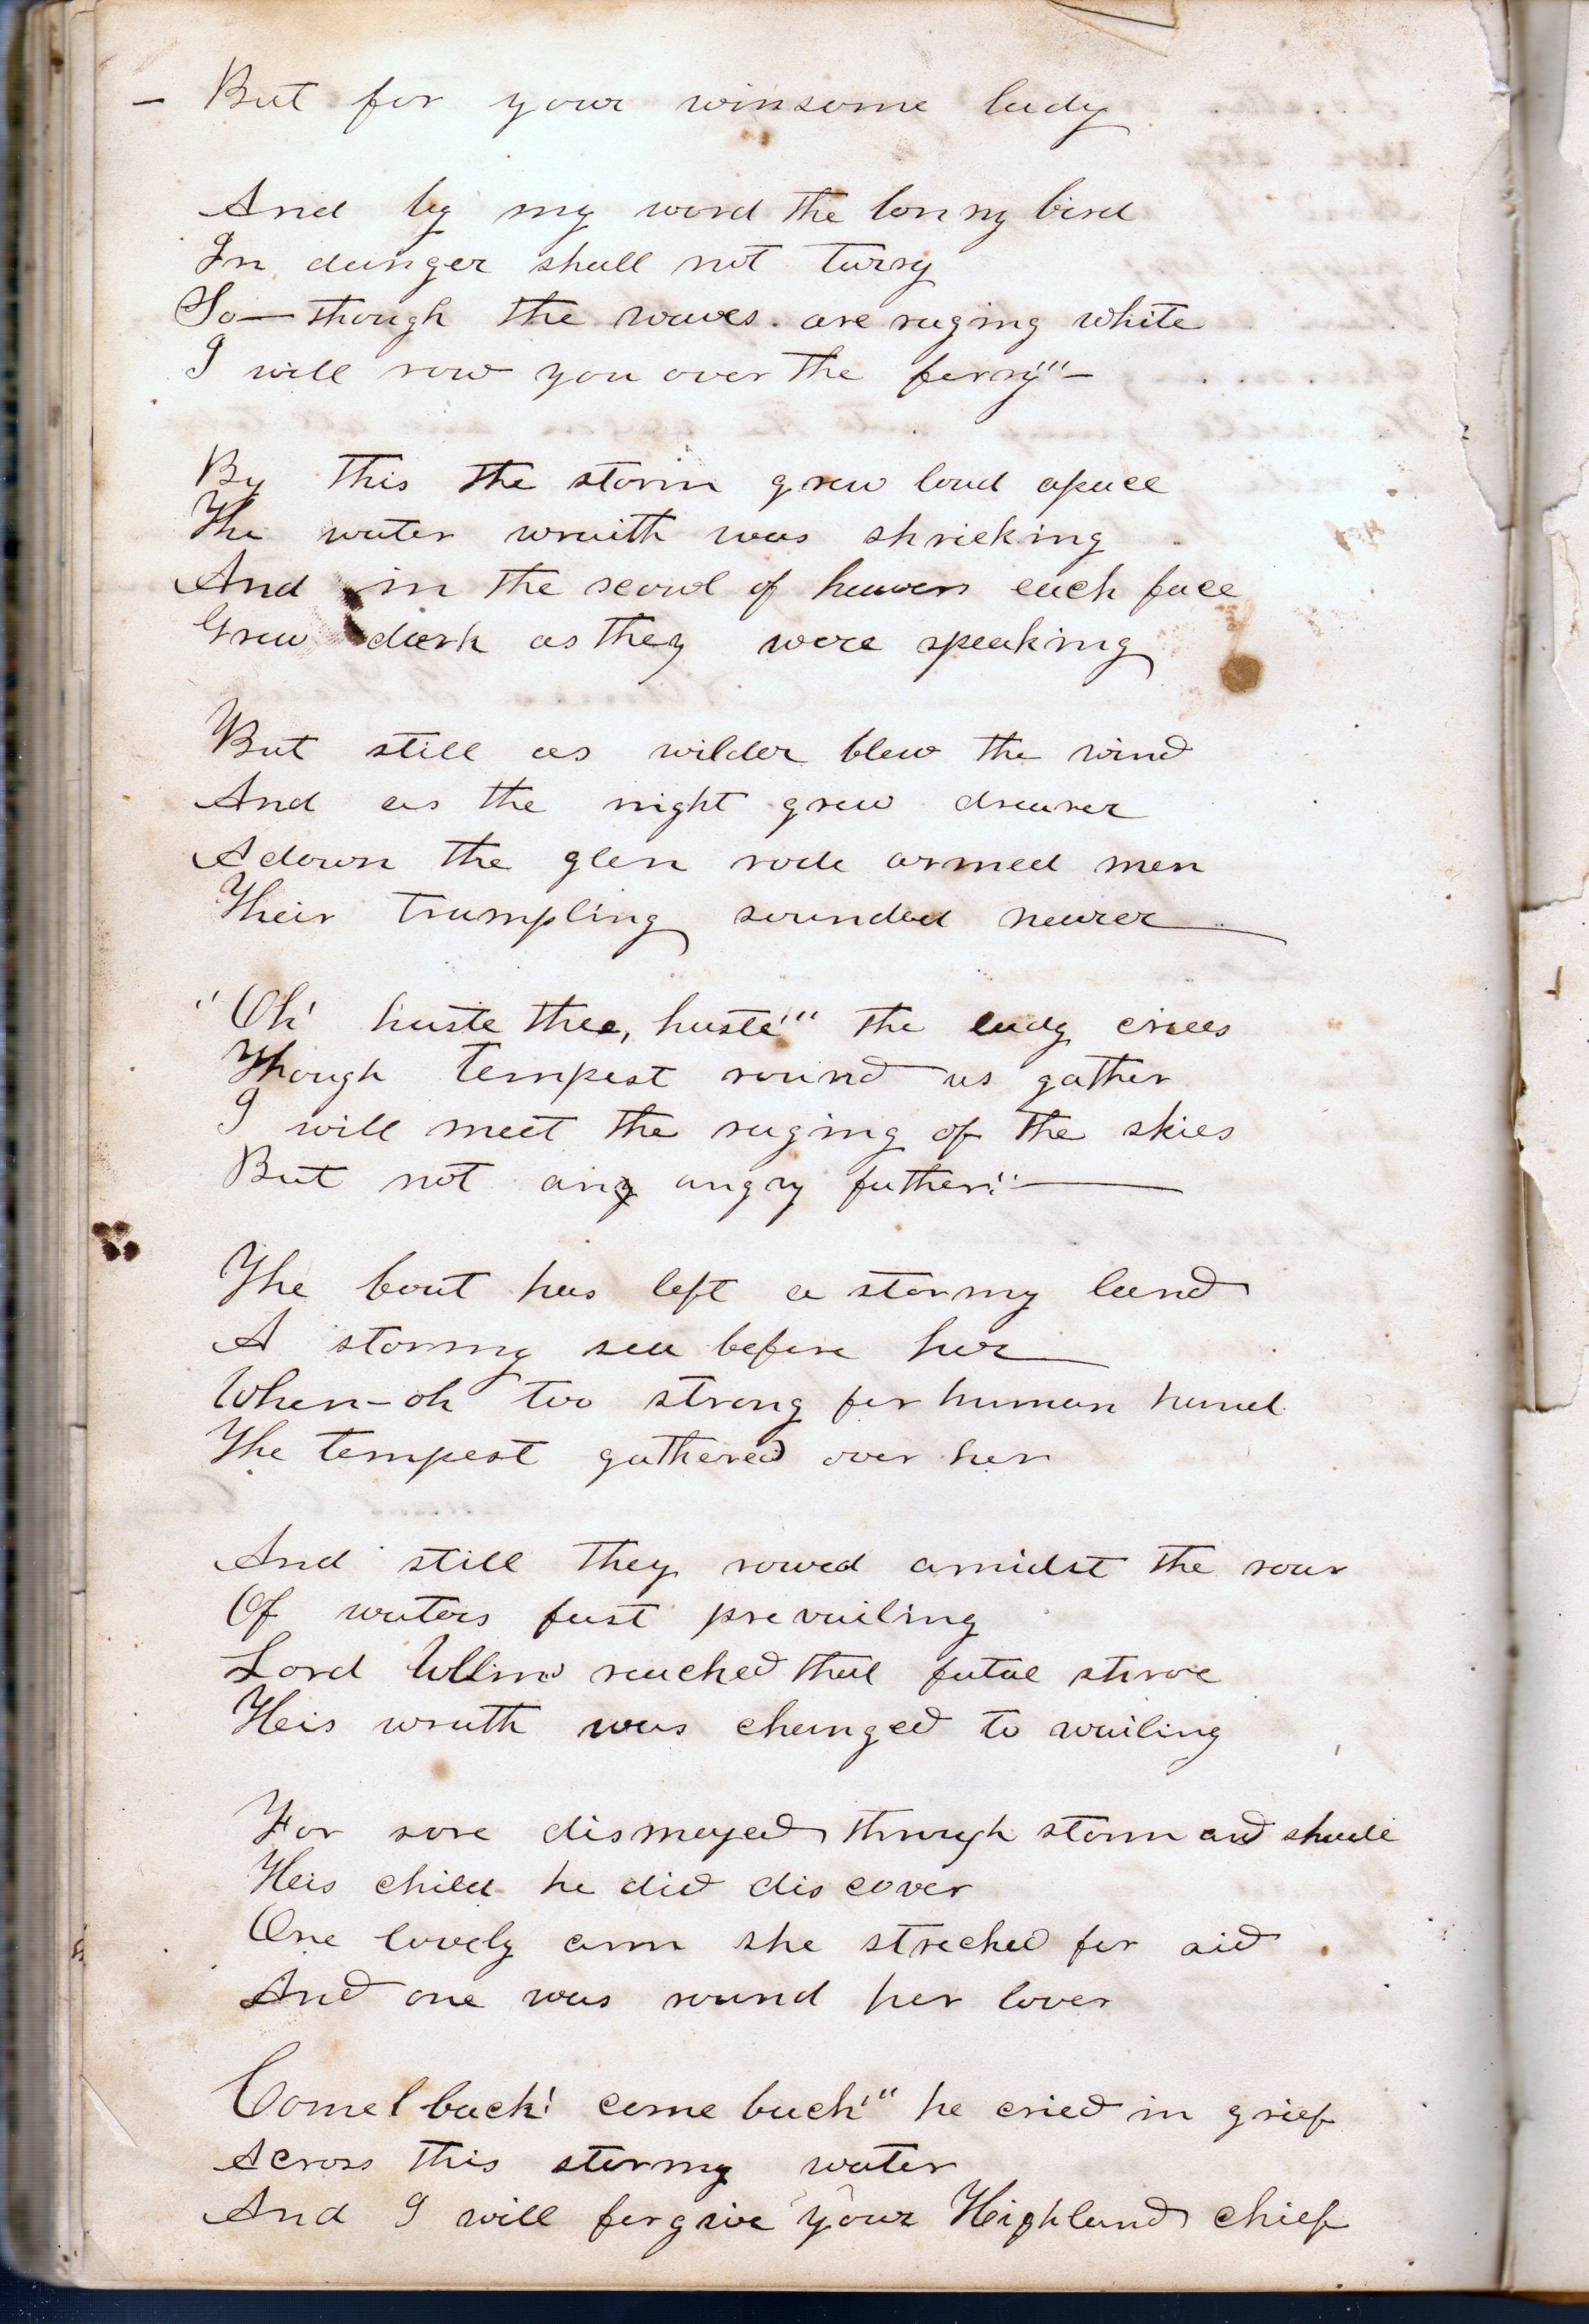 — But for your winsome lady
And by my word the bonny bird
In danger shall not tarry
So — though the waves are raging white
I will row you over the ferry"—
By this the storm grew loud apace
The water wraith was shrieking
And in the scowl of heaven each face
Grew dark as they were speaking
But still as wilder blew the wind
And as the night grew drearer
Adown the glen rode armed men
Their trampling sounded nearer
"Oh! haste thee, haste!" the lady cries
Though tempest round us gather
I will meet the raging of the skies
But not an angry father."
The boat has left a stormy land
A stormy sea before her
When — oh too strong for human hand
The tempest gathered over her
And still they rowed amidst the roar
Of waters fast prevailing
Lord Ullin reached that fatal shore
His wrath was changed to wailing
For sore dismayed through storm and shade
His child he did discover
One lovely arm she streched for aid
And one was round her lover
Come back! come back!" he cried in grief
Across this stormy water
And I will forgive your Highland chief